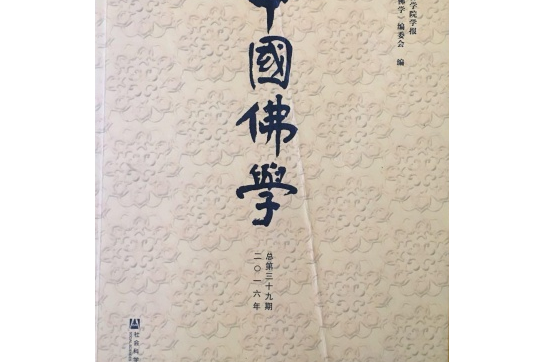 学院学报
佛学》编委会 编
中國佛學
总第三十九期
二〇一六年
社会科学